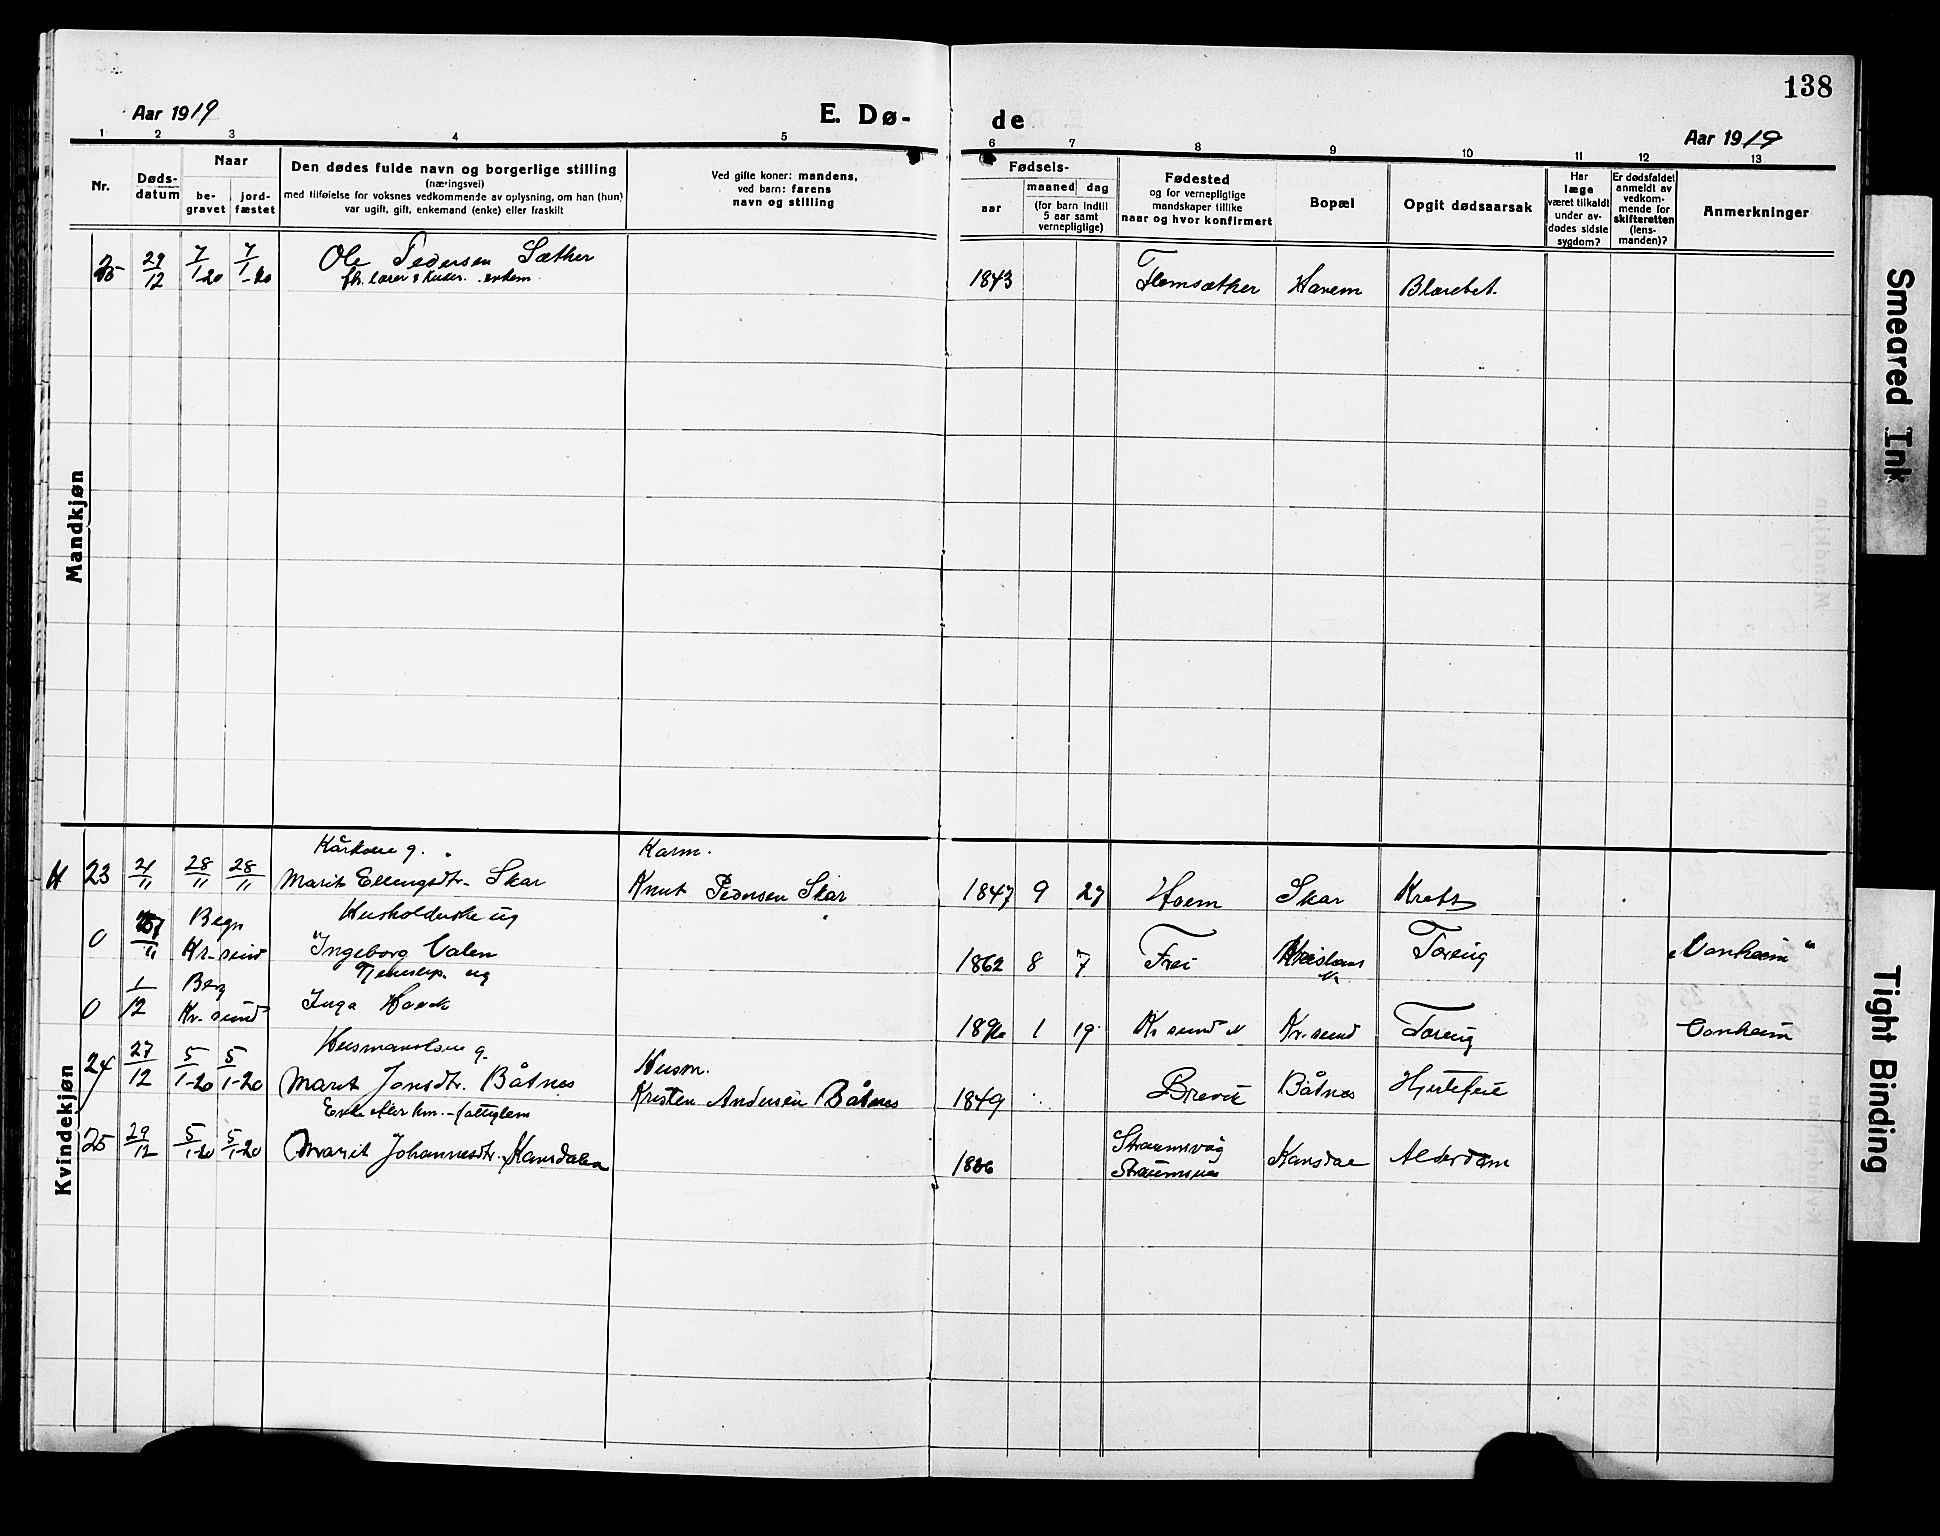 138
Aar 1919
E. Dø-
de
Aar 1919
1 2 3 4 5 6 7 8 9 10 11 12 13
Nr.
Døds-
datum
Naar
be-
gravet
jord-
fæstet
Den dødes fulde navn og borgerlige stilling
(næringsvei)
med tilføielse for voksnes vedkommende av oplysning, om han (hun)
var ugift, gift, enkemand (enke) eller fraskilt
Ved gifte koner: mandens,
ved barn: farens
navn og stilling
Fødsels-
aar
maaned
dag
(for barn indtil
5 aar samt
vernepligtige)
Fødested
og for vernepligtige
mandskaper tillike
naar og hvor konfirmert
Bopæl
Opgit dødsaarsak
Har
læge
været tilkaldt
under av-
dødes sidste
sygdom?
Er dødsfaldet
anmeldt av
vedkom-
mende for
skifteretten
(lens-
manden)?
Anmerkninger
Mandkjøn
25 29/12 7/1-20 7/1-20 Ole Pedersen Sæther 1843 Flemsæther Harem Blærebet.
fh. lærer
Kvindekjøn
Kårkone g. Karm.
23 21/11 28/11 28/11 Marit Ellingsdtr. Skar Knut Pedersen Skar 1847 9 27 Hoem Skar Kreft
Begr Husholderske ug
0 Kr.sund Ingeborg Valen 1862 8 7 Frei Tæring "Vonheim"
Beg Tjenestep. ug
0 1/12 Kr.sund Inga 1 19 Kr.sund N Kr.sund Tæring Vonheim
Husmandsk g. Husm.
24 27/12 5/1-20 5/1-20 Marit Jonsdtr. Båtnes Kristen Andersen Båtnes 1849 Brevik Båtnes Hjertefeil
Enke efter km. -fattiglem
25 29/12 5/1-20 5/1-20 Marit Johannesdtr. Kansdalen 1836 Straumsvåg Kansdal Alderdom
Straumsnes
Smeared Ink
Tight Binding